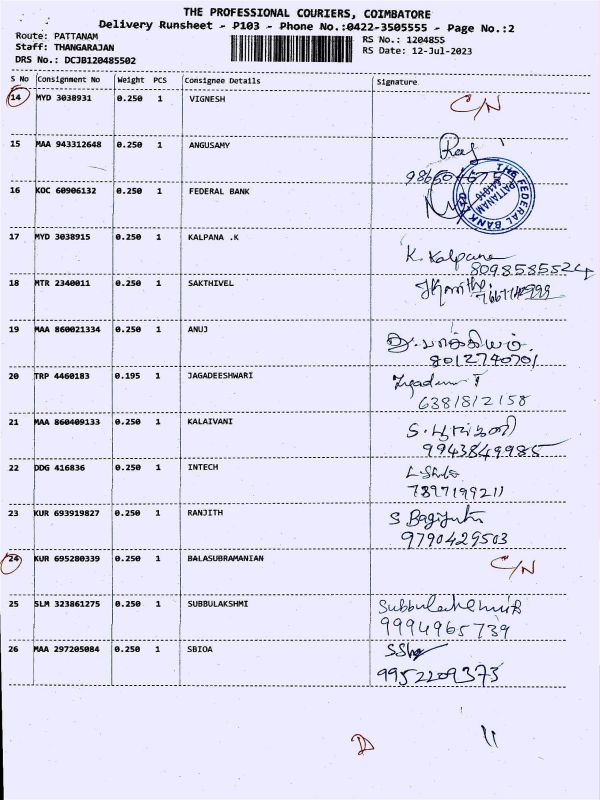 THE PROFESSIONAL COURIERS, COIMBATORE
Delivery Runsheet - P103 - Phone No.:0422-3505555 - Page No.:2
Route: PATTANAM
RS No.: 120485S
Staff: THANGARAJAN
RS Date: 12-Jul-2023
DRS No.: DCJB120485502
S No Consignment No Weight PCS Consignee Details Signature
14 MYD 3038931 0.250 1 VIGNESH C/N
15 MAA 943312648 0.250 1 ANGUSAMY Raj
16 KOC 60906132 0.250 1 FEDERAL BANK THE FEDERAL BANK LTD PATTANAM 641016
17 MYD 3038915 0.250 1 KALPANA .K K. Kalpana
8098585524
18 MTR 2340011 0.250 1 SAKTHIVEL
19 MAA 860021334 0.250 1 ANUJ
8012740701
20 TRP 4460183 0.195 1 JAGADEESHWARI
6381812158
21 MAA 860409133 0.250 1 KALAIVANI
9943849985
22 DDG 416836 0.250 1 INTECH
7897199211
23 KUR 693919827 0.250 1 RANJITH
9790429503
24 KUR 695280339 0.250 1 BALASUBRAMANIAN C/N
25 SLM 323861275 0.250 1 SUBBULAKSHMI
9994965739
26 MAA 297205084 0.250 1 SBIOA
9952209373
11